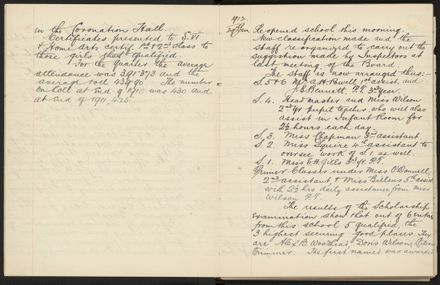 in the Coronation Hall.
Certificates presented to S.VI
& Home Arts certif. 1st & 2nd class to
those girls that qualified.
For the Quarter the average
attendance was and the
average roll The number
on roll at end of 1910 was 430 and
at end of 1911, 420.
1912.
Re opened school this morning.
New classification made and the
staff re organized to carry out the
suggestion made by Inspectors at
last meeting of the Board.
The Staff is now arranged thus:—
S. 5 & 6 Mr A. H. 1st assist. and
J. E. Bennett. P.T. 3rd year.
S. 4. Headmaster and Miss Wilson
2nd yr pupil teacher who will also
assist in Infant Room for
2½ hours each day.
S. 3. Miss Chapman 3rd assistant
S. 2. Miss Squire 4th assistant to
oversee work of S.1 as well
S. 1. Miss E. H. Gills 3rd yr. P.T.
Primer Classes under Miss O'Donnell
2nd assistant, & Miss 5th assist
with 2½ hrs daily assistance from Miss
Wilson P.T.
The results of the Scholarship
examination show that out of 6 entries
from this school 5 qualified, the
3 highest securing good places. They
are Alex B. Woodhead Doris Wilson,
The first named was awarded